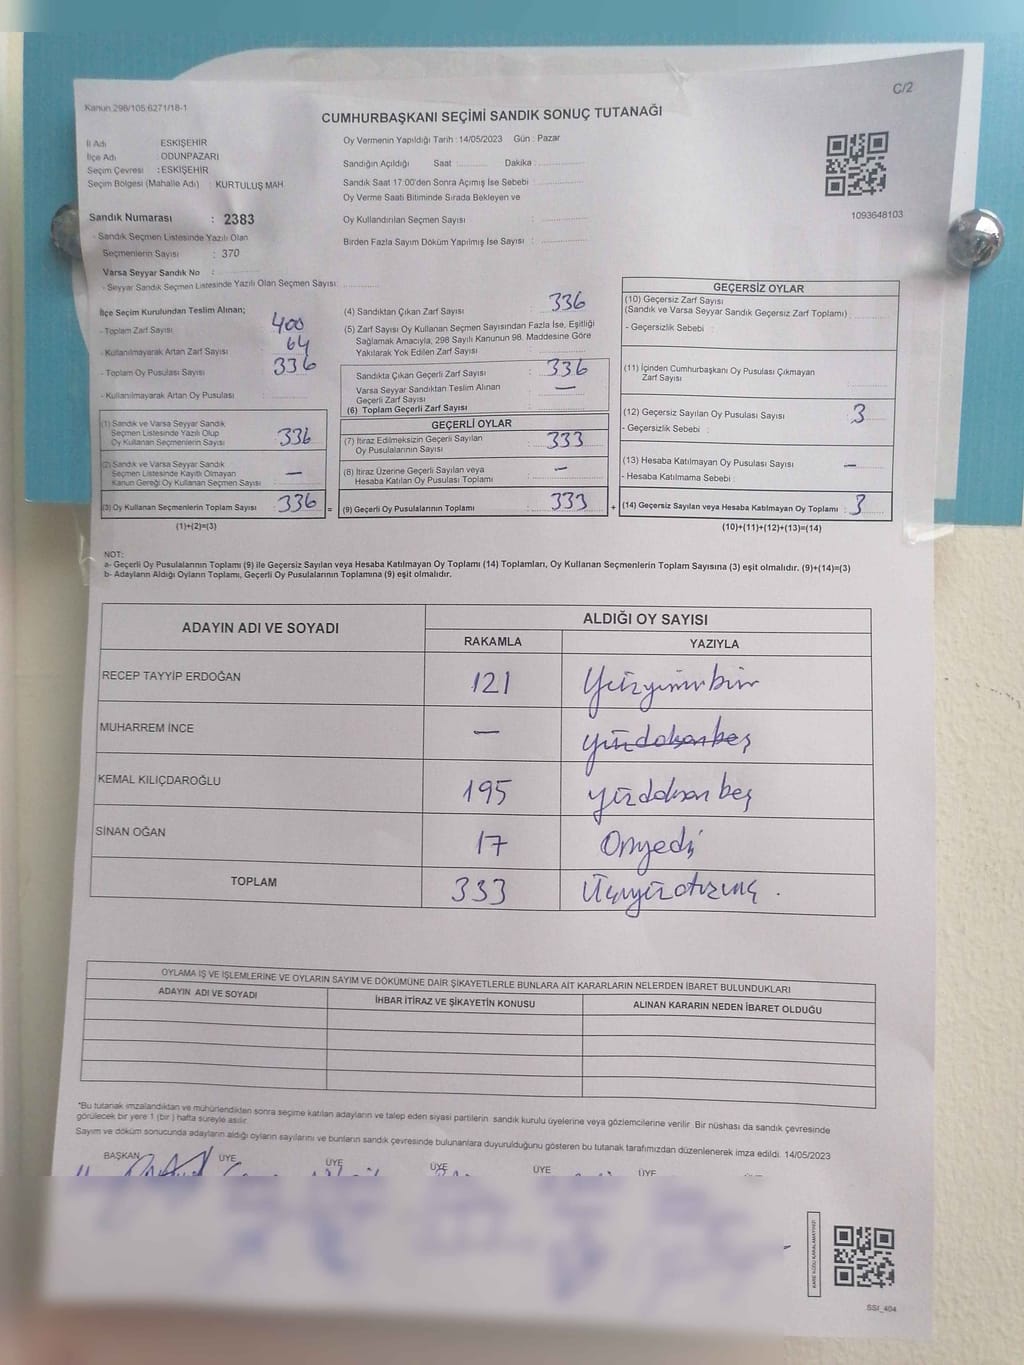 Kanun 298/105.6271/18-1
C/2
CUMHURBAŞKANI SEÇİMİ SANDIK SONUÇ TUTANAĞI
İl Adı ESKİŞEHİR
İlçe Adı : ODUNPAZARI
Seçim Çevresi : ESKİŞEHİR
Seçim Bölgesi (Mahalle Adı) : KURTULUŞ MAH
Sandık Numarası : 2383
- Sandık Seçmen Listesinde Yazılı Olan
Seçmenlerin Sayısı : 370
Varsa Seyyar Sandık No :
- Seyyar Sandık Seçmen Listesinde Yazılı Olan Seçmen Sayısı:
Oy Vermenin Yapıldığı Tarih : 14/05/2023 Gün : Pazar
Sandığın Açıldığı Saat : Dakika :
Sandık Saat 17:00'den Sonra Açımış İse Sebebi :
Oy Verme Saati Bitiminde Sırada Bekleyen ve
Oy Kullandırılan Seçmen Sayısı :
Birden Fazla Sayım Döküm Yapılmış İse Sayısı :
1093648103
İlçe Seçim Kurulundan Teslim Alınan;
- Toplam Zarf Sayısı : 400
- Kullanılmayarak Artan Zarf Sayısı : 64
- Toplam Oy Pusulası Sayısı : 336
- Kullanılmayarak Artan Oy Pusulası :
(1) Sandık ve Varsa Seyyar Sandık
Seçmen Listesinde Yazılı Olup
Oy Kullanan Seçmenlerin Sayısı : 336
(2) Sandık ve Varsa Seyyar Sandık
Seçmen Listesinde Kayıtlı Olmayan
Kanun Gereği Oy Kullanan Seçmen Sayısı : —
(3) Oy Kullanan Seçmenlerin Toplam Sayısı : 336 =
(1)+(2)=(3)
(4) Sandıktan Çıkan Zarf Sayısı : 336
(5) Zarf Sayısı Oy Kullanan Seçmen Sayısından Fazla İse, Eşitliği
Sağlamak Amacıyla, 298 Sayılı Kanunun 98. Maddesine Göre
Yakılarak Yok Edilen Zarf Sayısı :
Sandıkta Çıkan Geçerli Zarf Sayısı : 336
Varsa Seyyar Sandıktan Teslim Alınan
Geçerli Zarf Sayısı : —
(6) Toplam Geçerli Zarf Sayısı :
GEÇERLİ OYLAR
(7) İtiraz Edilmeksizin Geçerli Sayılan
Oy Pusulalarının Sayısı : 333
(8) İtiraz Üzerine Geçerli Sayılan veya
Hesaba Katılan Oy Pusulası Toplamı : —
(9) Geçerli Oy Pusulalarının Toplamı : 333 +
GEÇERSİZ OYLAR
(10) Geçersiz Zarf Sayısı
(Sandık ve Varsa Seyyar Sandık Geçersiz Zarf Toplamı) :
- Geçersizlik Sebebi :
(11) İçinden Cumhurbaşkanı Oy Pusulası Çıkmayan
Zarf Sayısı :
(12) Geçersiz Sayılan Oy Pusulası Sayısı : 3
- Geçersizlik Sebebi :
(13) Hesaba Katılmayan Oy Pusulası Sayısı : —
- Hesaba Katılmama Sebebi :
(14) Geçersiz Sayılan veya Hesaba Katılmayan Oy Toplamı : 3
(10)+(11)+(12)+(13)=(14)
NOT:
a- Geçerli Oy Pusulalarının Toplamı (9) ile Geçersiz Sayılan veya Hesaba Katılmayan Oy Toplamı (14) Toplamları, Oy Kullanan Seçmenlerin Toplam Sayısına (3) eşit olmalıdır. (9)+(14)=(3)
b- Adayların Aldığı Oyların Toplamı, Geçerli Oy Pusulalarının Toplamına (9) eşit olmalıdır.
ADAYIN ADI VE SOYADI ALDIĞI OY SAYISI
RAKAMLA YAZIYLA
RECEP TAYYİP ERDOĞAN 121 Yüzyirmibir
MUHARREM İNCE — yüzdoksanbeş
KEMAL KILIÇDAROĞLU 195 yüzdoksanbeş
SİNAN OĞAN 17 Onyedi
TOPLAM 333 Üçyüzotuzüç .
OYLAMA İŞ VE İŞLEMLERİNE VE OYLARIN SAYIM VE DÖKÜMÜNE DAİR ŞİKAYETLERLE BUNLARA AİT KARARLARIN NELERDEN İBARET BULUNDUKLARI
ADAYIN ADI VE SOYADI İHBAR İTİRAZ VE ŞİKAYETİN KONUSU ALINAN KARARIN NEDEN İBARET OLDUĞU
*Bu tutanak imzalandıktan ve mühürlendikten sonra seçime katılan adayların ve talep eden siyasi partilerin sandık kurulu üyelerine veya gözlemcilerine verilir. Bir nüshası da sandık çevresinde
görülecek bir yere 1 (bir ) hafta süreyle asılır.
Sayım ve döküm sonucunda adayların aldığı oyların sayılarını ve bunların sandık çevresinde bulunanlara duyurulduğunu gösteren bu tutanak tarafımızdan düzenlenerek imza edildi. 14/05/2023
BAŞKAN ÜYE ÜYE ÜYE ÜYE ÜYE
KARE KODU KARALAMAYINIZ!
SSI_404